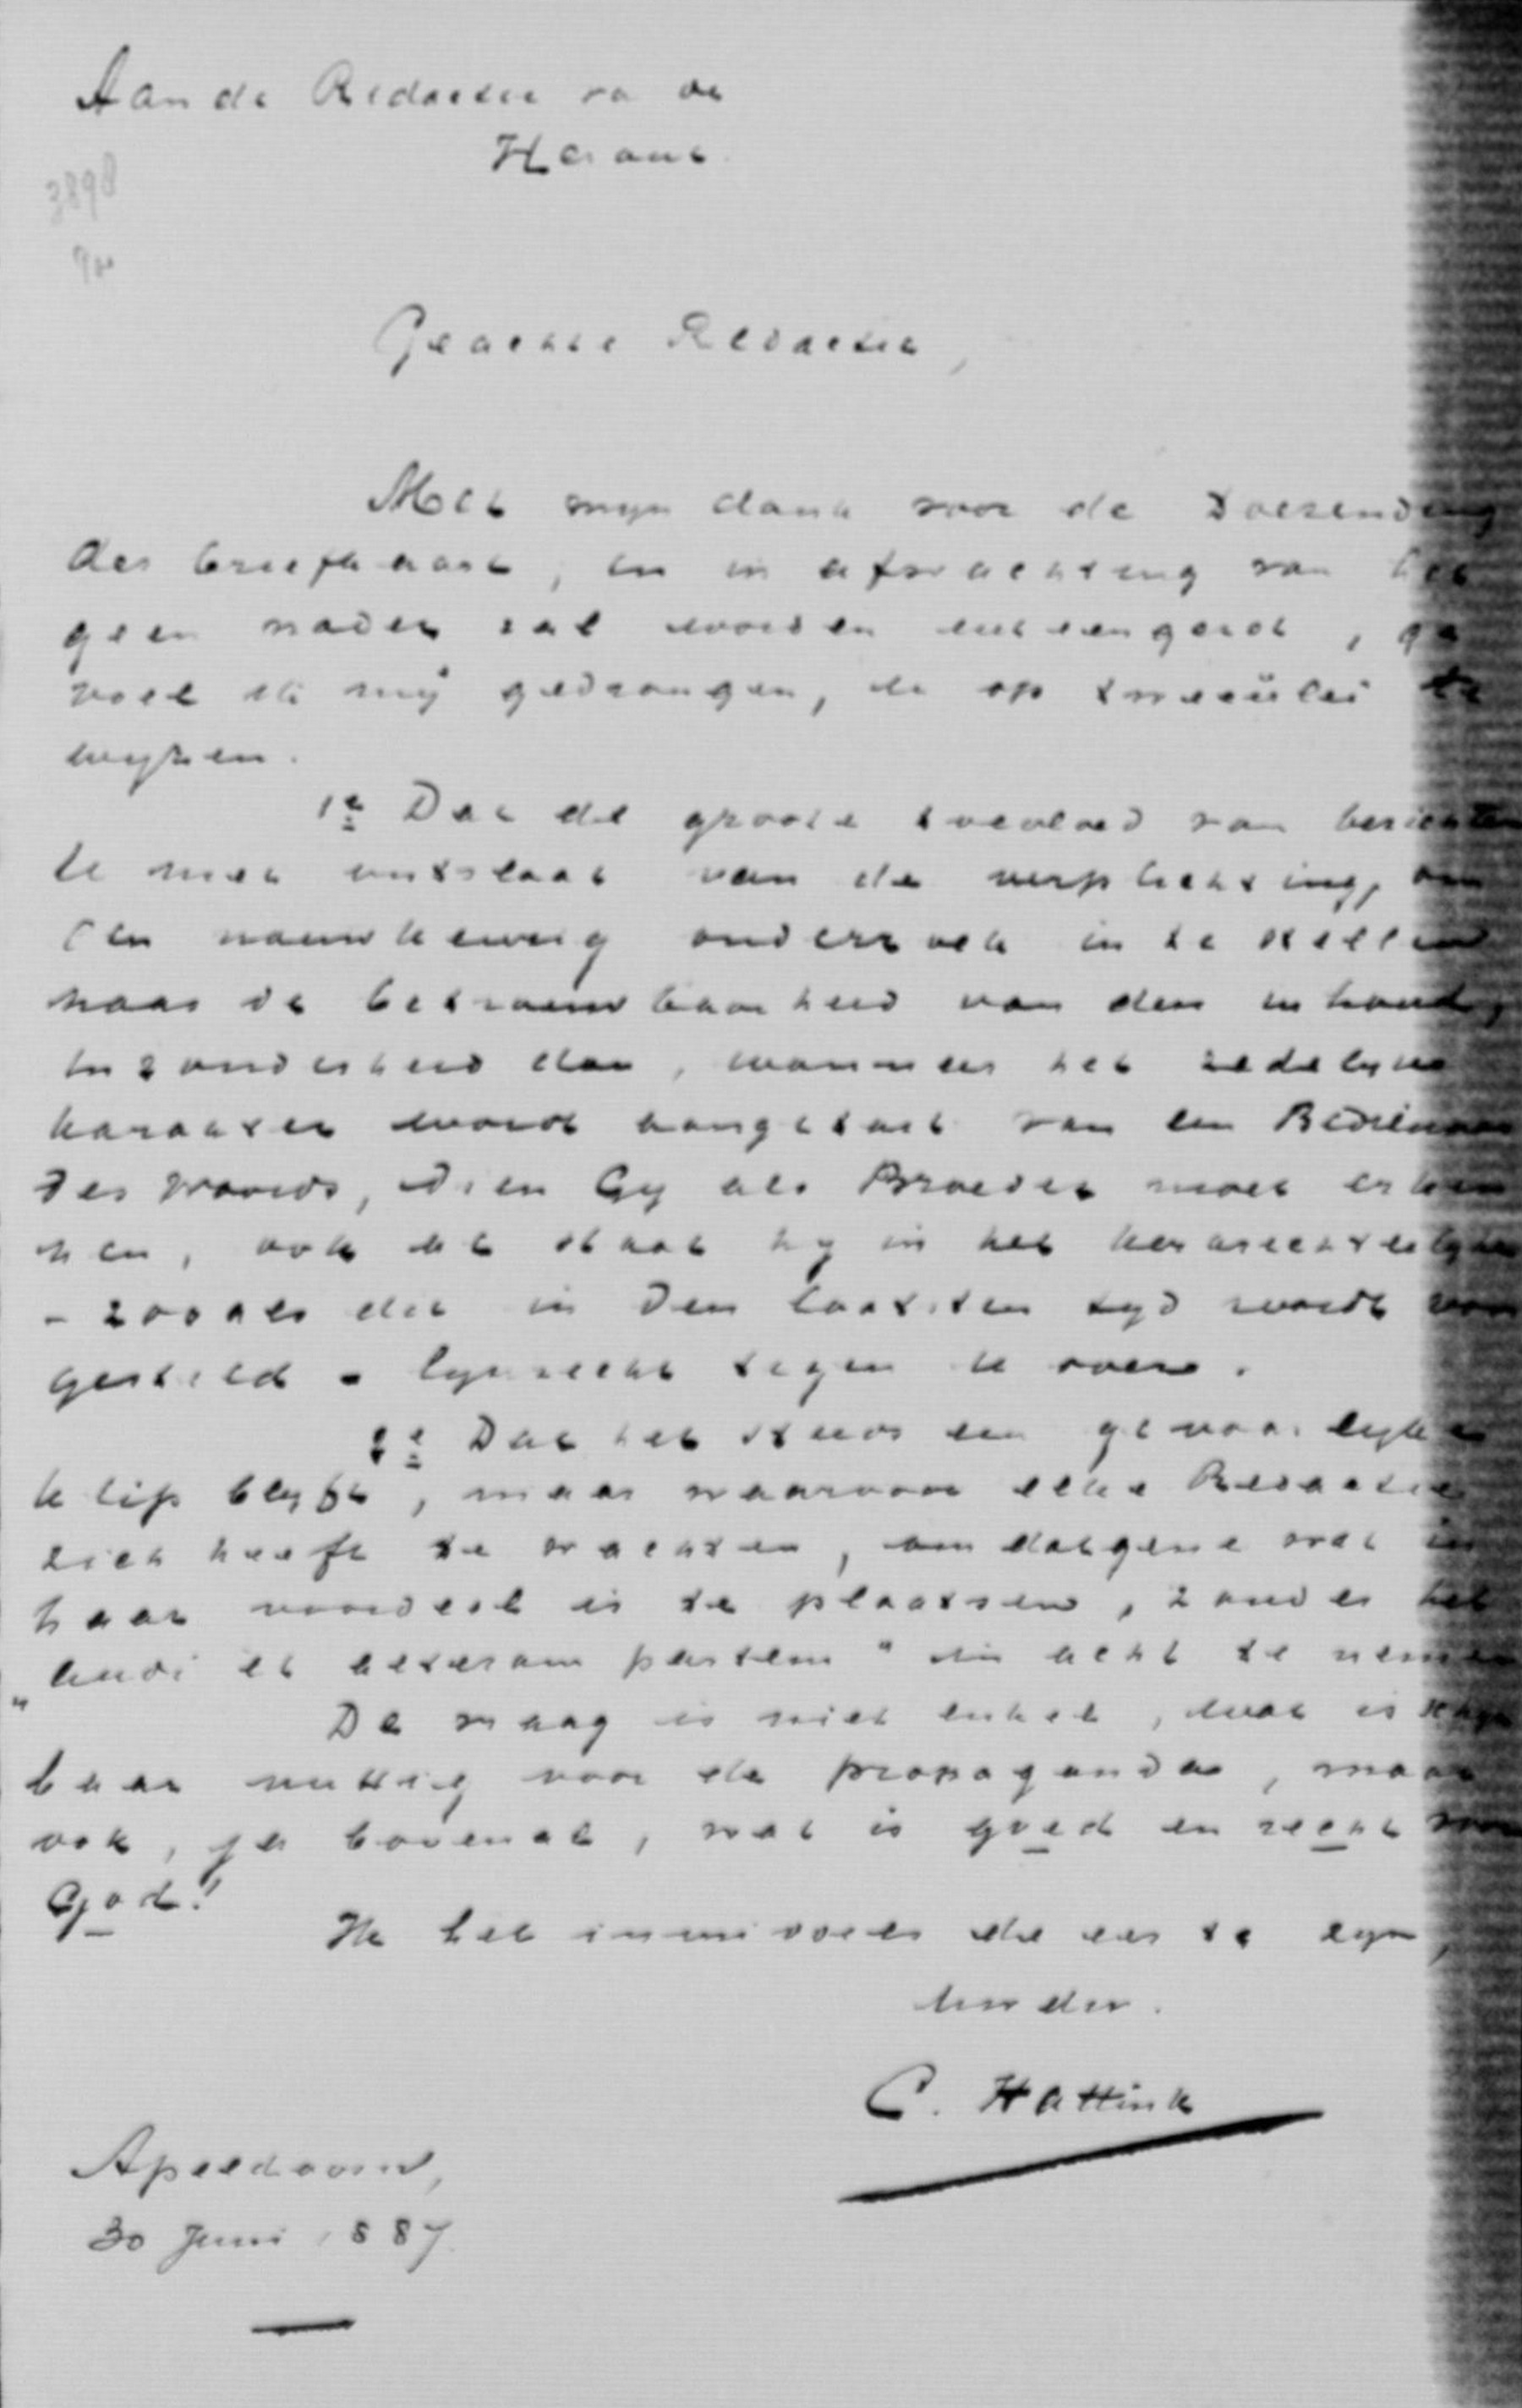 Aan de Redactie va de
Heraut.
3898
Geachte Redactie,
Met myn dank voor de Toezending
der briefkaart, en in afwachting van het
geen nader zal worden , ge
voel ik mij gedrongen, er op tweeërlei te
wyzen.
1e Dat de groote toevloed van berichten
U niet ontslaat van de verplichting, om
een nauwkeurig onderzoek in te stellen
naar de betrouwbaarheid van den inhoud,
inzonderheid dan, wanneer het zedelyke
karakter wordt aangetast van een Bedienaar
des Woords, dien Gy als Broeder moet erken
nen, ook al staat hy in het kerkrechtelyke
- zooals dit in den laatsten tyd wordt voor
gesteld - lynrecht tegen U over.
2e Dat het steeds een gevaarlyke
klip blyft, maar waarvoor elke Redactie
zich heeft te wachten, om datgene wat in
haar voordeel is te plaatsen, zonder het
„audi et alteram partem" in acht te nemen
De vraag is niet enkel, wat is schyn
baar nuttig voor de propaganda, maar
ook, ja bovenal, wat is goed en recht voor
God!
Ik heb inmiddels de eer te zyn,
Uw dw.
C. Hattink
Apeldoorn,
30 Juni 1887